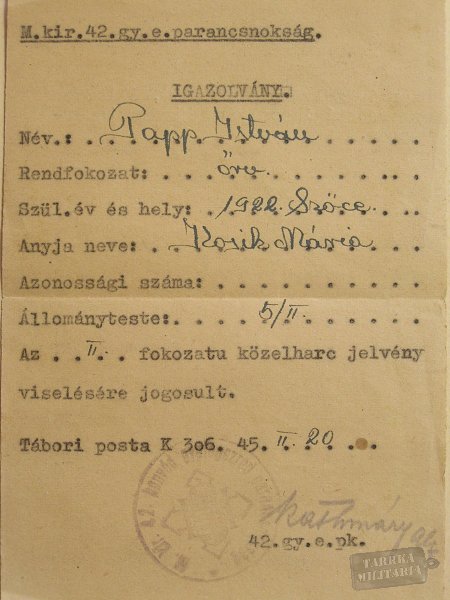 M.kir.42.gy.e.parancsnokság.
IGAZOLVÁNY.
Név.: Papp István
Rendfokozat: őrv
Szül.év és hely: 1922. Szőce
Anyja neve: Kosik Mária
Azonossági száma:
Állományteste: 5/II.
Az II. fokozatu közelharc jelvény
viselésére jogosult.
Tábori posta K 306. 45. II. 20.
42.gy.e.pk.
TARRKA
MILITARIA